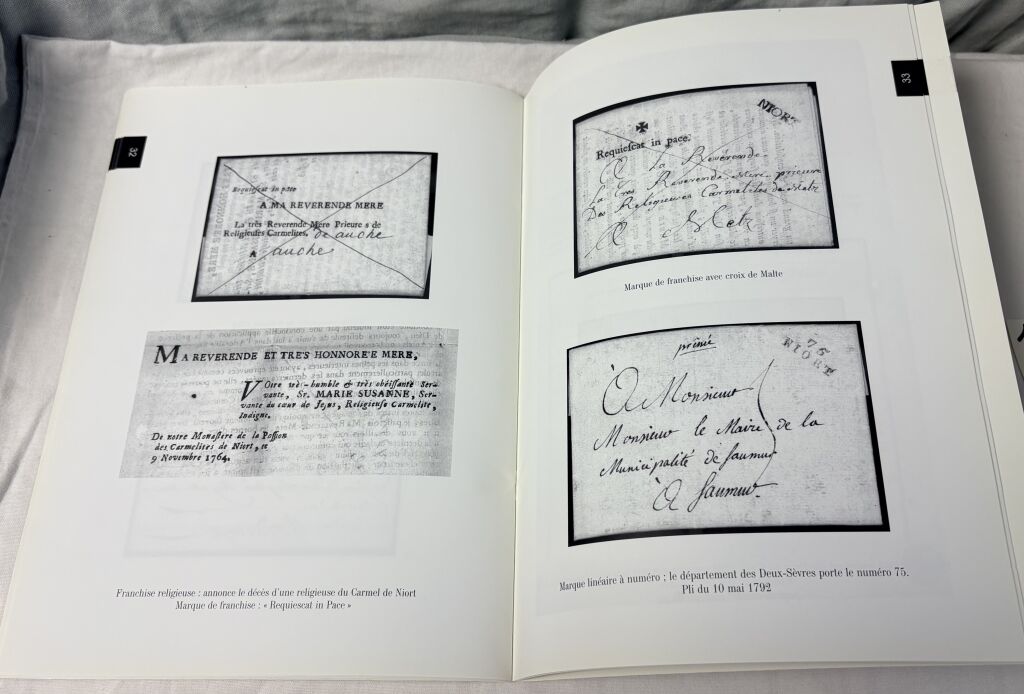 32
Requiescat in pace
A MA REVERENDE MERE
La très Reverende Mere Prieure s de
Religieuses Carmelites, de auche
A auche
MA REVERENDE ET TRE'S HONNORE'E MERE,
Votre très-humble & très obéissante Ser-
vante, Sr. MARIE SUSANNE, Ser-
vante du cœur de Jesus, Religieuse Carmelite,
Indigne.
De notre Monastère de la Passion
des Carmelites de Niort, ce
9 Novembre 1764.
Franchise religieuse : annonce le décès d'une religieuse du Carmel de Niort
Marque de franchise : « Requiescat in Pace »
33
NIORT
Requiescat in pace.
A La Reverende
La tres Reverende Mere prieure
Des Religieuses Carmelites de Metz
A Metz
Marque de franchise avec croix de Malte
75
NIORT
À Monsieur
Monsieur le Maire de la
Municipalité de Saumur
À Saumur.
Marque linéaire à numéro ; le département des Deux-Sèvres porte le numéro 75.
Pli du 10 mai 1792